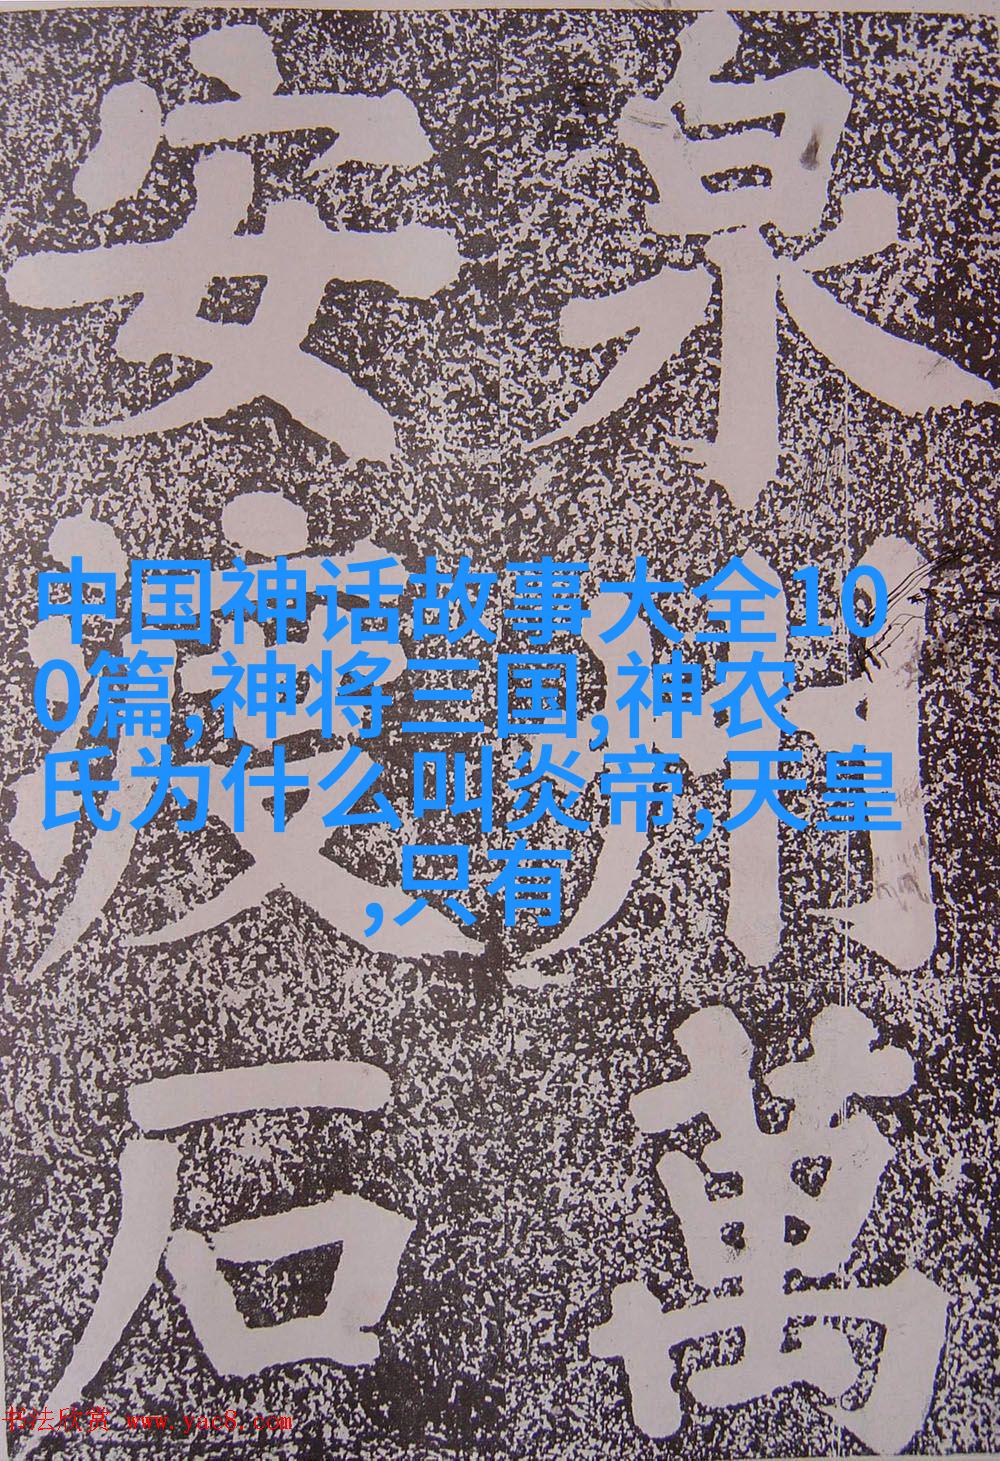 泉州萬
安渡石
中国神话故事大全10
0篇,神将三国,神农
氏为什么叫炎帝,天皇
,只有
书法欣赏 www.yac8.com